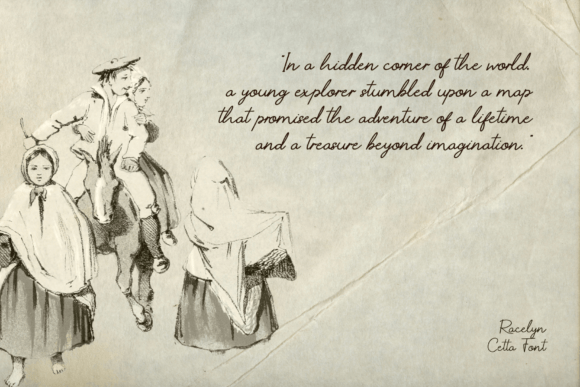 "In a hidden corner of the world,
a young explorer stumbled upon a map
that promised the adventure of a lifetime
and a treasure beyond imagination."
Racelyn
Cetta Font